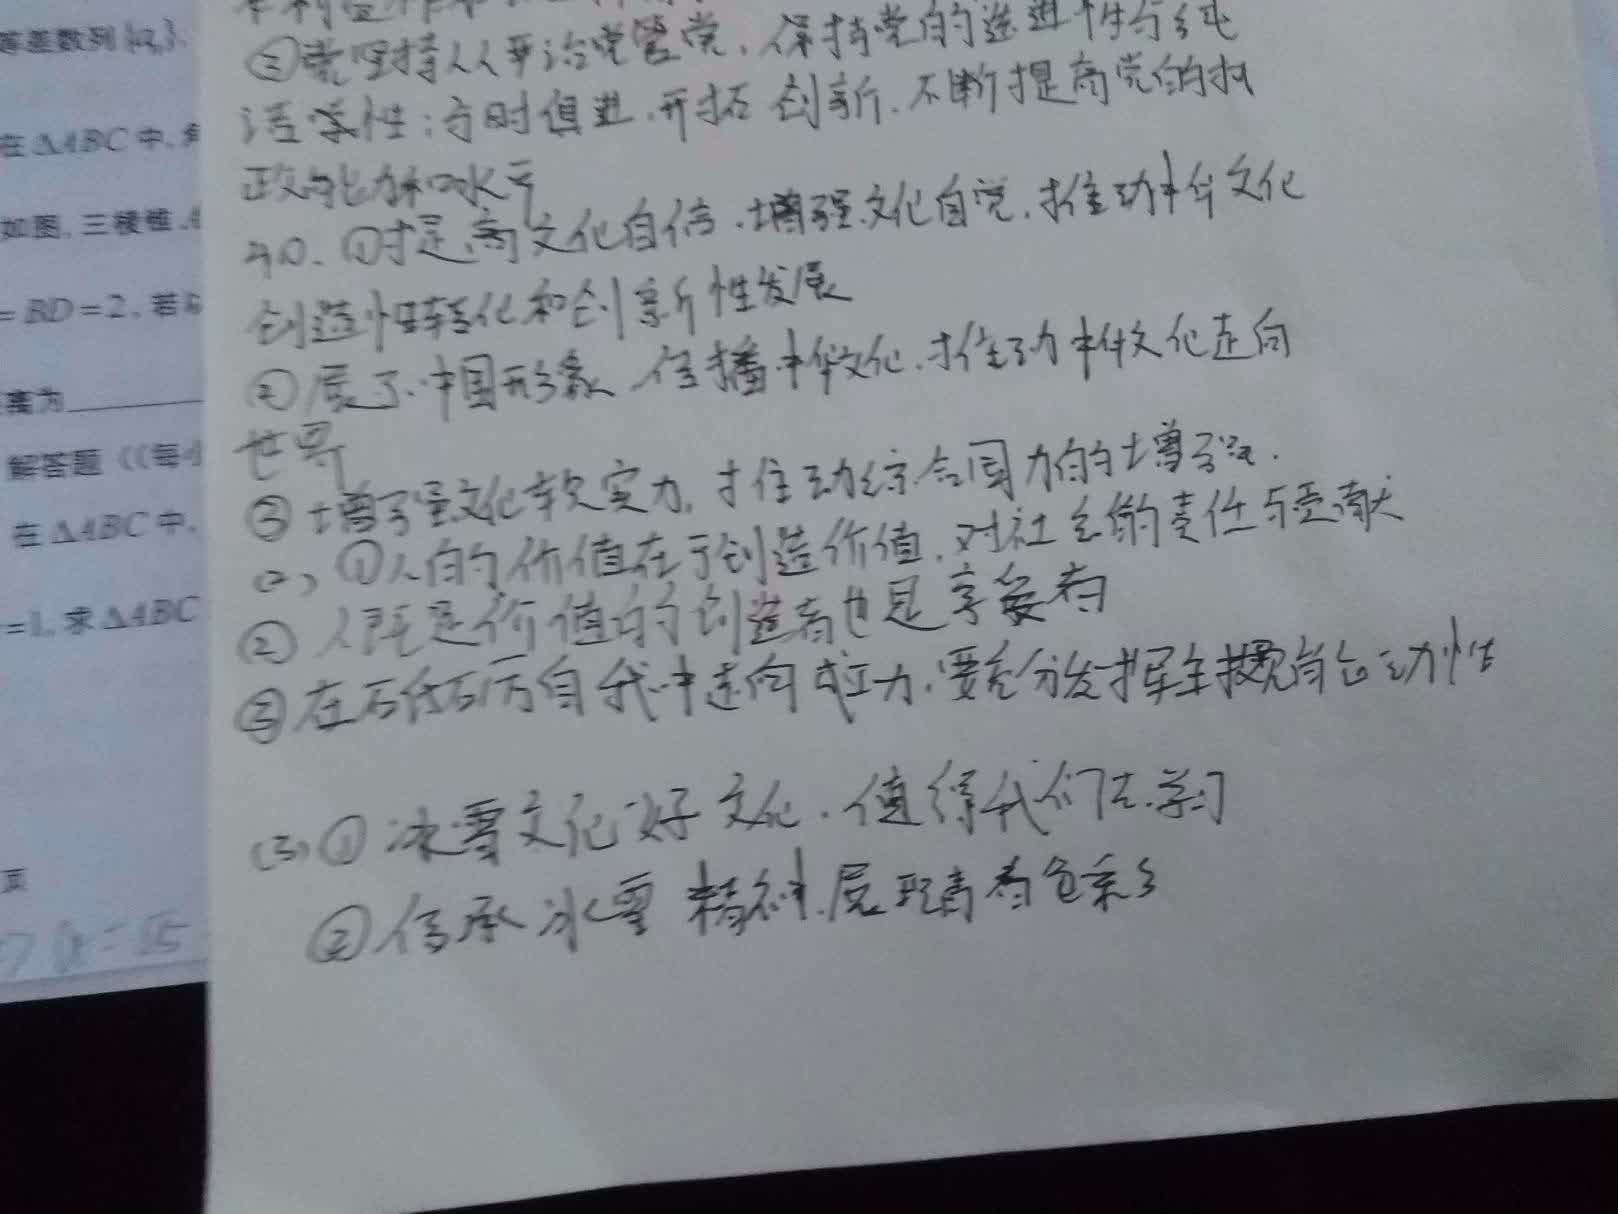 等差数列{aₙ}.
在△ABC中,角
如图,三棱锥
=BD=2,若
解答题((每小
在△ABC中,
=1,求△ABC
页
③党坚持从严治党管党,保持党的先进性与纯
洁性;与时俱进,开拓创新,不断提高党的执
政能力和水平
40. ①提高文化自信,增强文化自觉,推动中华文化
创造性转化和创新性发展
②展示中国形象 传播中华文化,推动中华文化走向
世界
③增强文化软实力,推动综合国力的增强.
(2) ①人的价值在于创造价值,对社会的责任与贡献
②人既是价值的创造者也是享受者
③在砥砺自我中走向成功,要充分发挥主观能动性
(3)①冰雪文化好文化,值得我们去学习
②传承冰雪精神,展现青春色彩